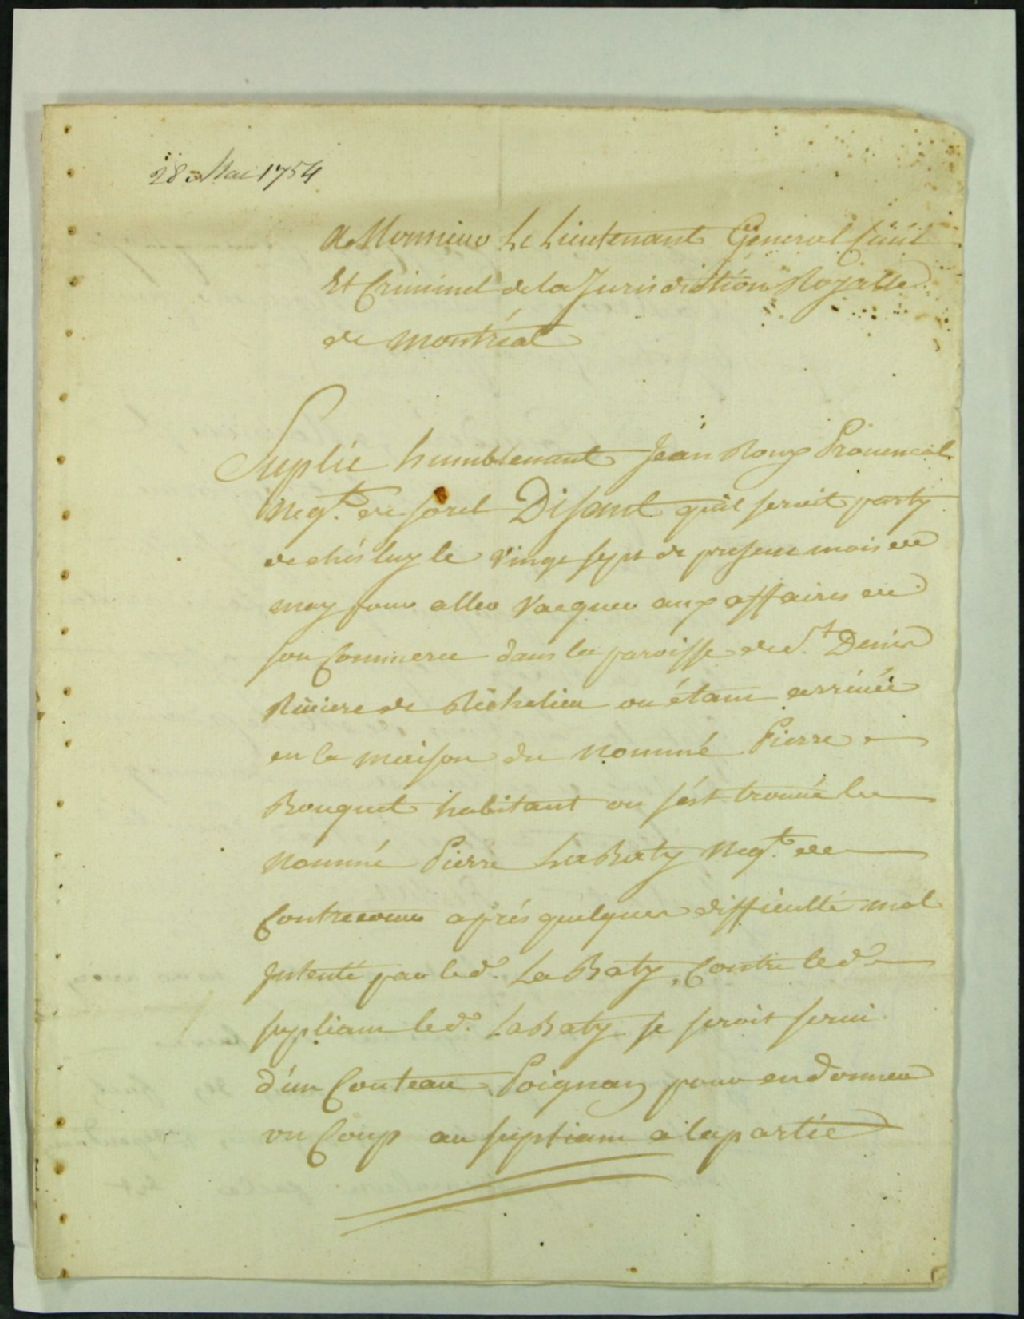 28 Mai 1754
A Monsieur Le Lieutenant General Civil
Et Criminel de la Jurisdiction Royalle
de Montréal
Suplie humblement Jean Roux Provencal
Negt. de Sorel Disant quil seroit party
de chés luy le vingt sept de present mois de
may pour aller vacquer aux affaires de
son Commerce dans la paroisse de St. Denis
Riviere de Richelieu ou étant arrivée
en la maison du nommé Pierre
Bouquet habitant ou s'est trouvé le
nommé Pierre LaBaty Negt. de
Contrecoeur aprés quelques difficulté mal
Intenté par led. LaBaty, Contre led.
supliant led. LaBaty se seroit servi
d'un Couteau Poignan pour en donner
un Coup au supliant a la partie